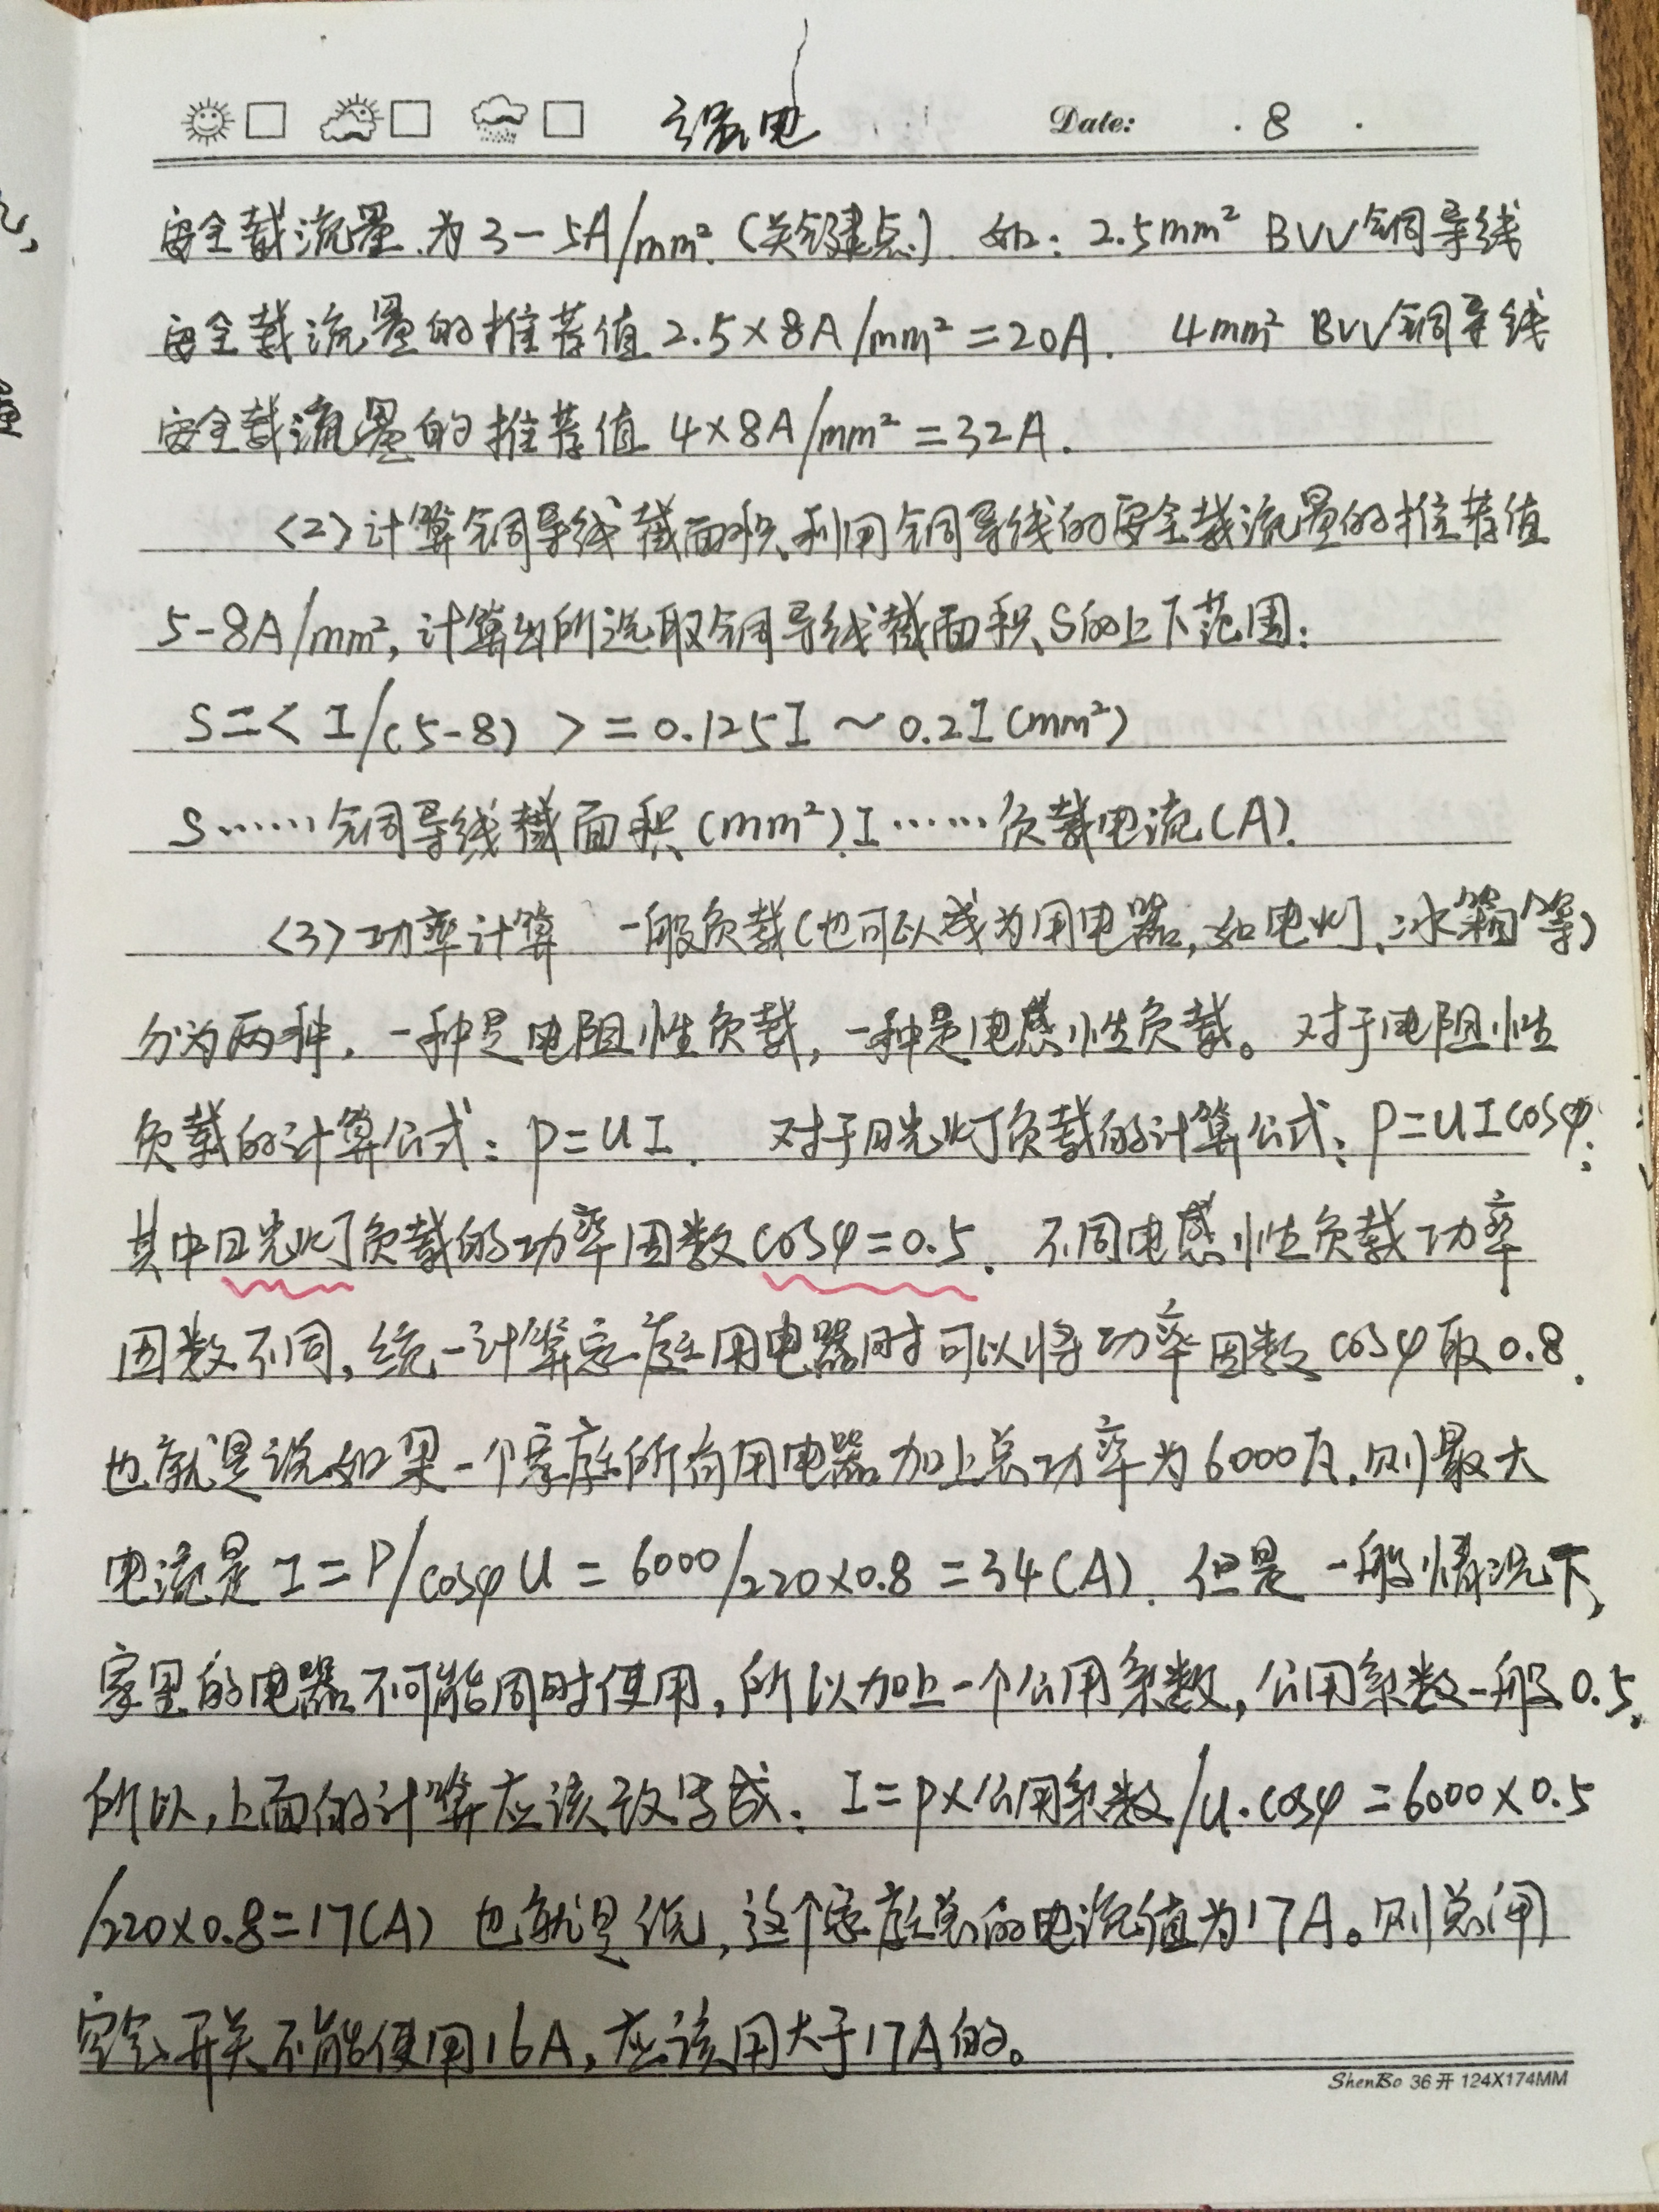 强电 Date: . 8 .
安全载流量为3-5A/mm². (关键点) 如: 2.5mm² BVV铜导线
安全载流量的推荐值 2.5×8A/mm²=20A. 4mm² BVV铜导线
安全载流量的推荐值 4×8A/mm²=32A.
<2>计算铜导线截面积,利用铜导线的安全载流量的推荐值
5-8A/mm²,计算出所选取铜导线截面积S的上下范围:
S=< I/(5-8) >=0.125I~0.2I(mm²)
S……铜导线截面积(mm²).I……负载电流(A).
<3>功率计算 一般负载(也可以成为用电器,如电灯、冰箱等)
分为两种,一种是电阻性负载,一种是电感性负载。对于电阻性
负载的计算公式:P=UI. 对于日光灯负载的计算公式:P=UIcosφ:
其中日光灯负载的功率因数cosφ=0.5. 不同电感性负载功率
因数不同,统一计算家庭用电器时可以将功率因数cosφ取0.8.
也就是说如果一个家庭所有用电器加上总功率为6000瓦,则最大
电流是I=P/cosφU=6000/220×0.8=34(A). 但是一般情况下,
家里的电器不可能同时使用,所以加上一个公用系数,公用系数一般0.5.
所以,上面的计算应该改写成:I=P×公用系数/U.cosφ=6000×0.5
/220×0.8=17(A) 也就是说,这个家庭总的电流值为17A。则总闸
空气开关不能使用16A,应该用大于17A的。
ShenBo 36开 124X174MM